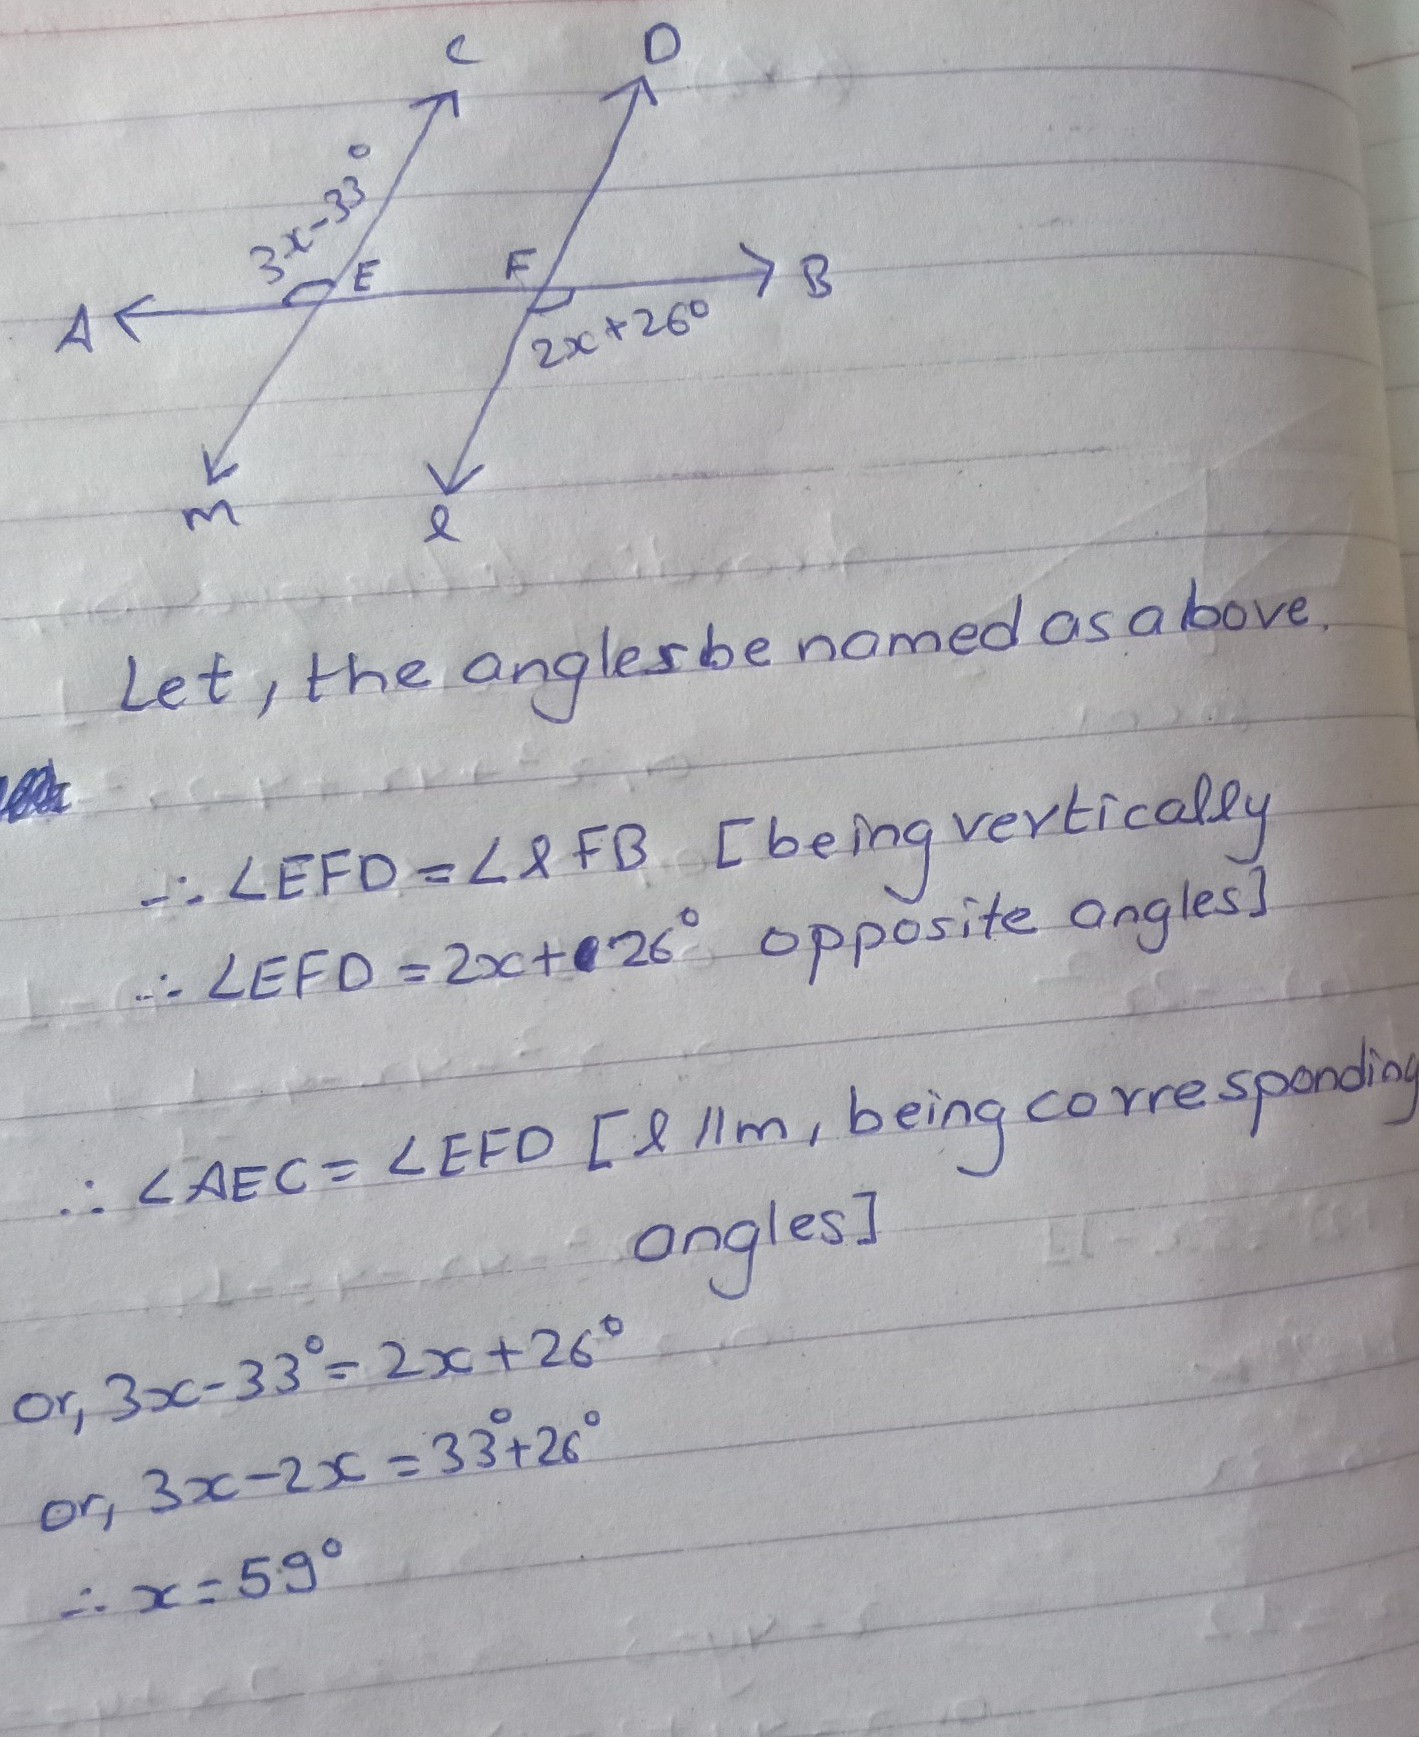 C
D
3x-33°
E
F
A
B
2x+26°
m
l
Let, the angles be named as above.
∴ ∠EFD = ∠lFB [being vertically
∴ ∠EFD = 2x+26° opposite angles]
∴ ∠AEC = ∠EFD [l//m, being corresponding
angles]
or, 3x-33° = 2x+26°
or, 3x-2x = 33°+26°
∴ x = 59°